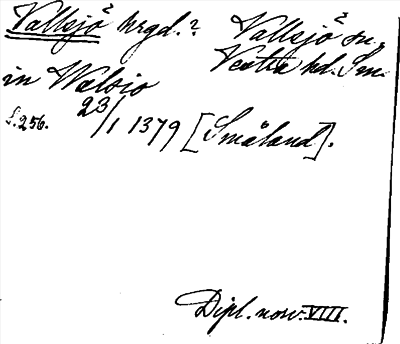 Vallsjö² hrgd.? Vallsjö² sn,
Västra hd. Sm.
in Wælsio
s. 256. 23/1 1379 [Småland].
Dipl. norv. VIII.